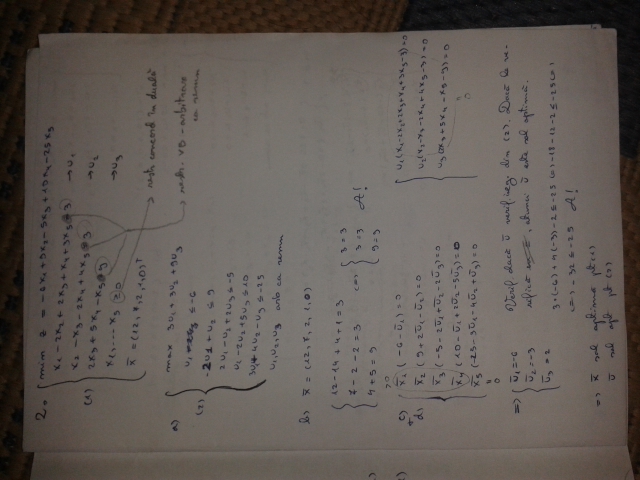 2. { min z = -6x1+9x2-5x3+10x4-25x5
x1-2x2+2x3+x4+3x5=3 →u1
x2-x3-2x4+4x5=3 →u2
(1) 2x3+5x4-x5=9 →u3
x1,...x5≥0
x̄=(12,7,2,1,0)T?
→ restr concord în duală
→ restr. VD-arbitrare
ca semn
a) max 3u1+3u2+9u3
u1≤-6
(2) -2u1+u2≤9
2u1-u2+2u3≤-5
u1-2u2+5u3≤10
3u1+4u2-u3≤-25
u1,u2,u3 arb ca semn
b) x̄=(12,7,2,1,0)
{ 12-14+4+1=3
7-2-2=3
4+5=9
(=) { 3=3
3=3
9=9
A!
c)
d)
x̄1(-6-ū1)=0
x̄2(9+2ū1-ū2)=0
x̄3(-5-2ū1+ū2-2ū3)=0
x̄4(10-ū1+2ū2-5ū3)=0
x̄5(-25-3ū1-4ū2+ū3)=0
u1(x1-2x2+2x3+x4+3x5-3)=0
u2(x2-x3-2x4+4x5-3)=0
u3(2x3+5x4-x5-9)=0
=) { ū1=-6
ū2=-3
ū3=2
Verif dacă ū verifică din (2). Dacă le ve-
rifică, atunci ū este sol optimă.
3·(-6)+4(-3)-2≤-25 (=) -18-12-2≤-25 (=)
(=) -32≤-25 A!
=) x̄ sol optimă pt (1)
ū sol opt pt (2)